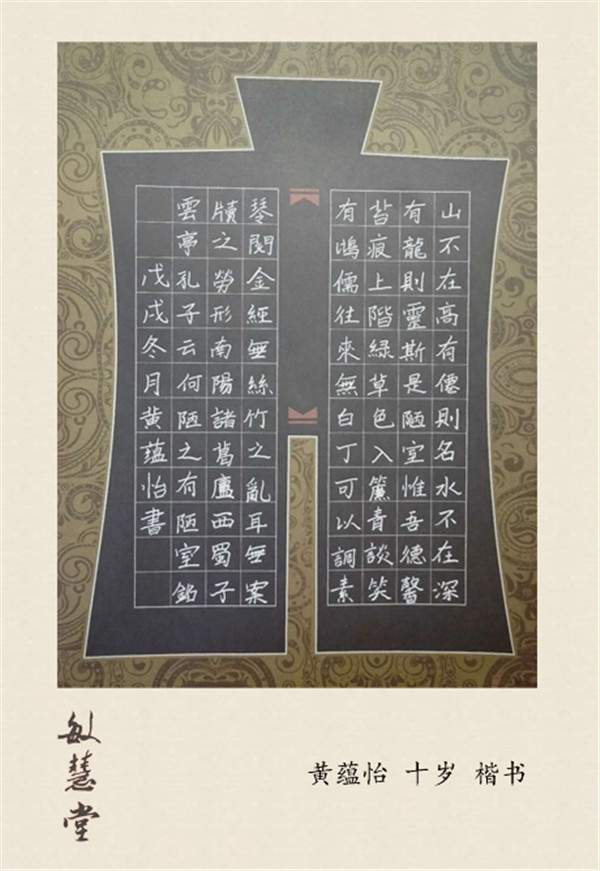 山不在高有僊則名水不在深
有龍則靈斯是陋室惟吾德馨
苔痕上階綠草色入簾青談笑
有鴻儒往來無白丁可以調素
琴閱金經無絲竹之亂耳無案
牘之勞形南陽諸葛廬西蜀子
雲亭孔子云何陋之有陋室銘
戊戌冬月黄蕴怡書
敏慧堂
黄蕴怡 十岁 楷书